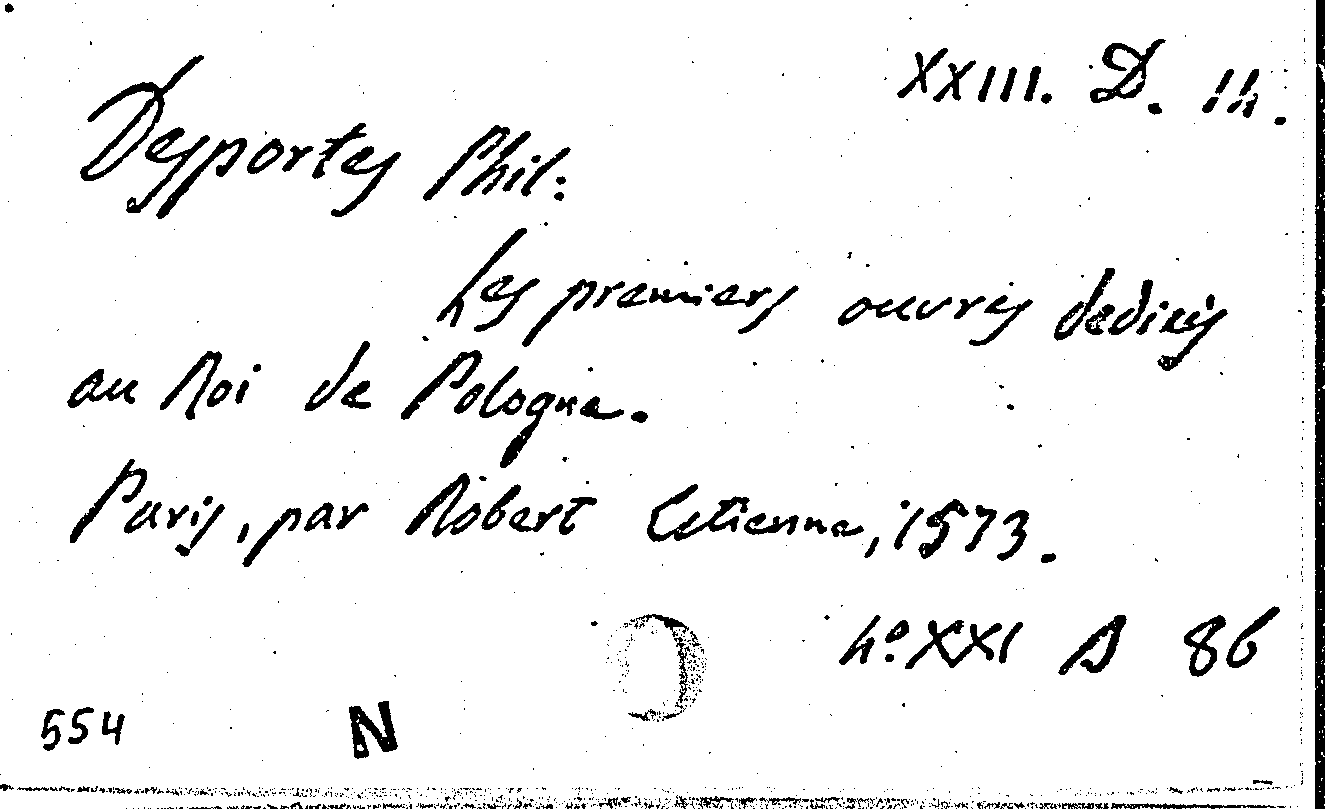 XXIII. D. 14.
Desportes Phil:
Les premiers ouvres dediées
au Roi de Pologne.
Paris, par Robert Estienne, 1573.
4º XXI A 86
554 N